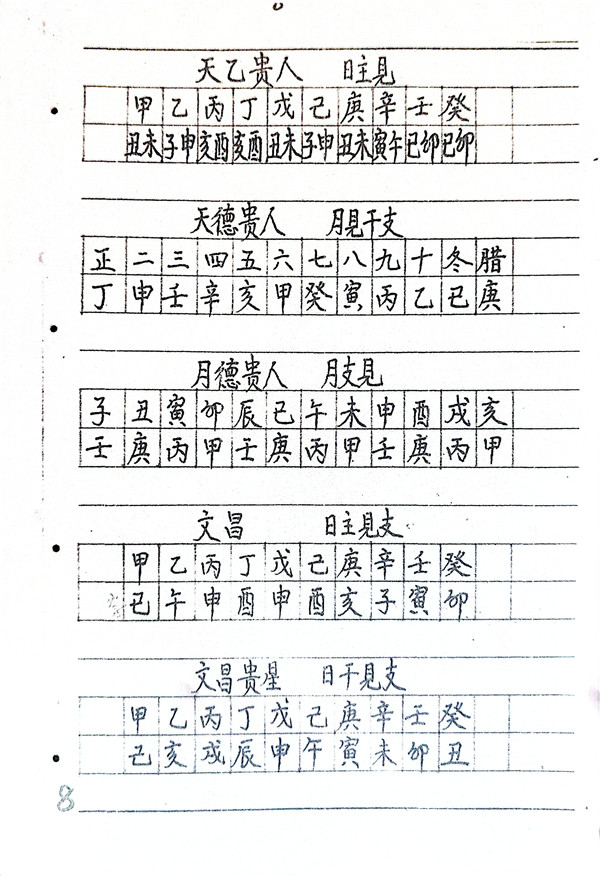 天乙贵人 日主見
甲 乙 丙 丁 戊 己 庚 辛 壬 癸
丑未 子申 亥酉 亥酉 丑未 子申 丑未 寅午 巳卯 巳卯
天德贵人 月見干支
正 二 三 四 五 六 七 八 九 十 冬 腊
丁 申 壬 辛 亥 甲 癸 寅 丙 乙 巳 庚
月德贵人 月支見
子 丑 寅 卯 辰 巳 午 未 申 酉 戌 亥
壬 庚 丙 甲 壬 庚 丙 甲 壬 庚 丙 甲
文昌 日主見支
甲 乙 丙 丁 戊 己 庚 辛 壬 癸
巳 午 申 酉 申 酉 亥 子 寅 卯
文昌贵星 日干見支
甲 乙 丙 丁 戊 己 庚 辛 壬 癸
己 亥 戌 辰 申 午 寅 未 卯 丑
8